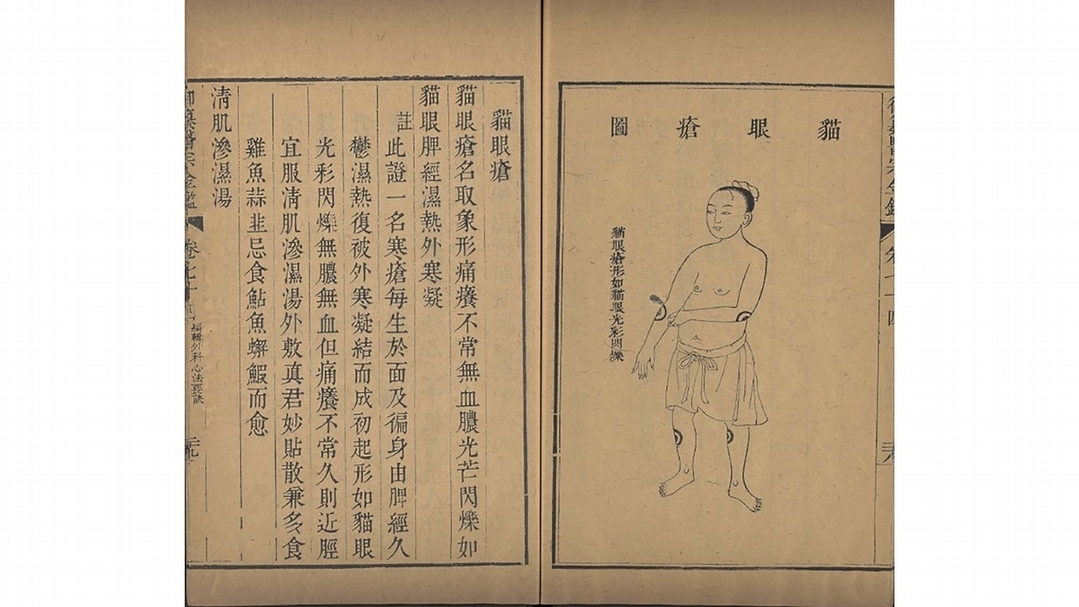 貓眼瘡圖
貓眼瘡形如貓眼光彩閃爍
貓眼瘡
貓眼瘡名取象形痛癢不常無血膿光芒閃爍如
貓眼脾經濕熱外寒凝
註此證一名寒瘡每生於面及徧身由脾經久
鬱濕熱復被外寒凝結而成初起形如貓眼
光彩閃爍無膿無血但痛癢不常久則近脛
宜服清肌滲濕湯外敷真君妙貼散兼多食
雞魚蒜韭忌食鮎魚蠏鰕而愈
清肌滲濕湯
御纂醫宗金鑑
卷七十
編輯外科心法要訣